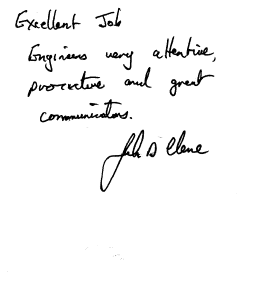 Excellent Job
Engineers very attentive,
proactive and great
communicators.